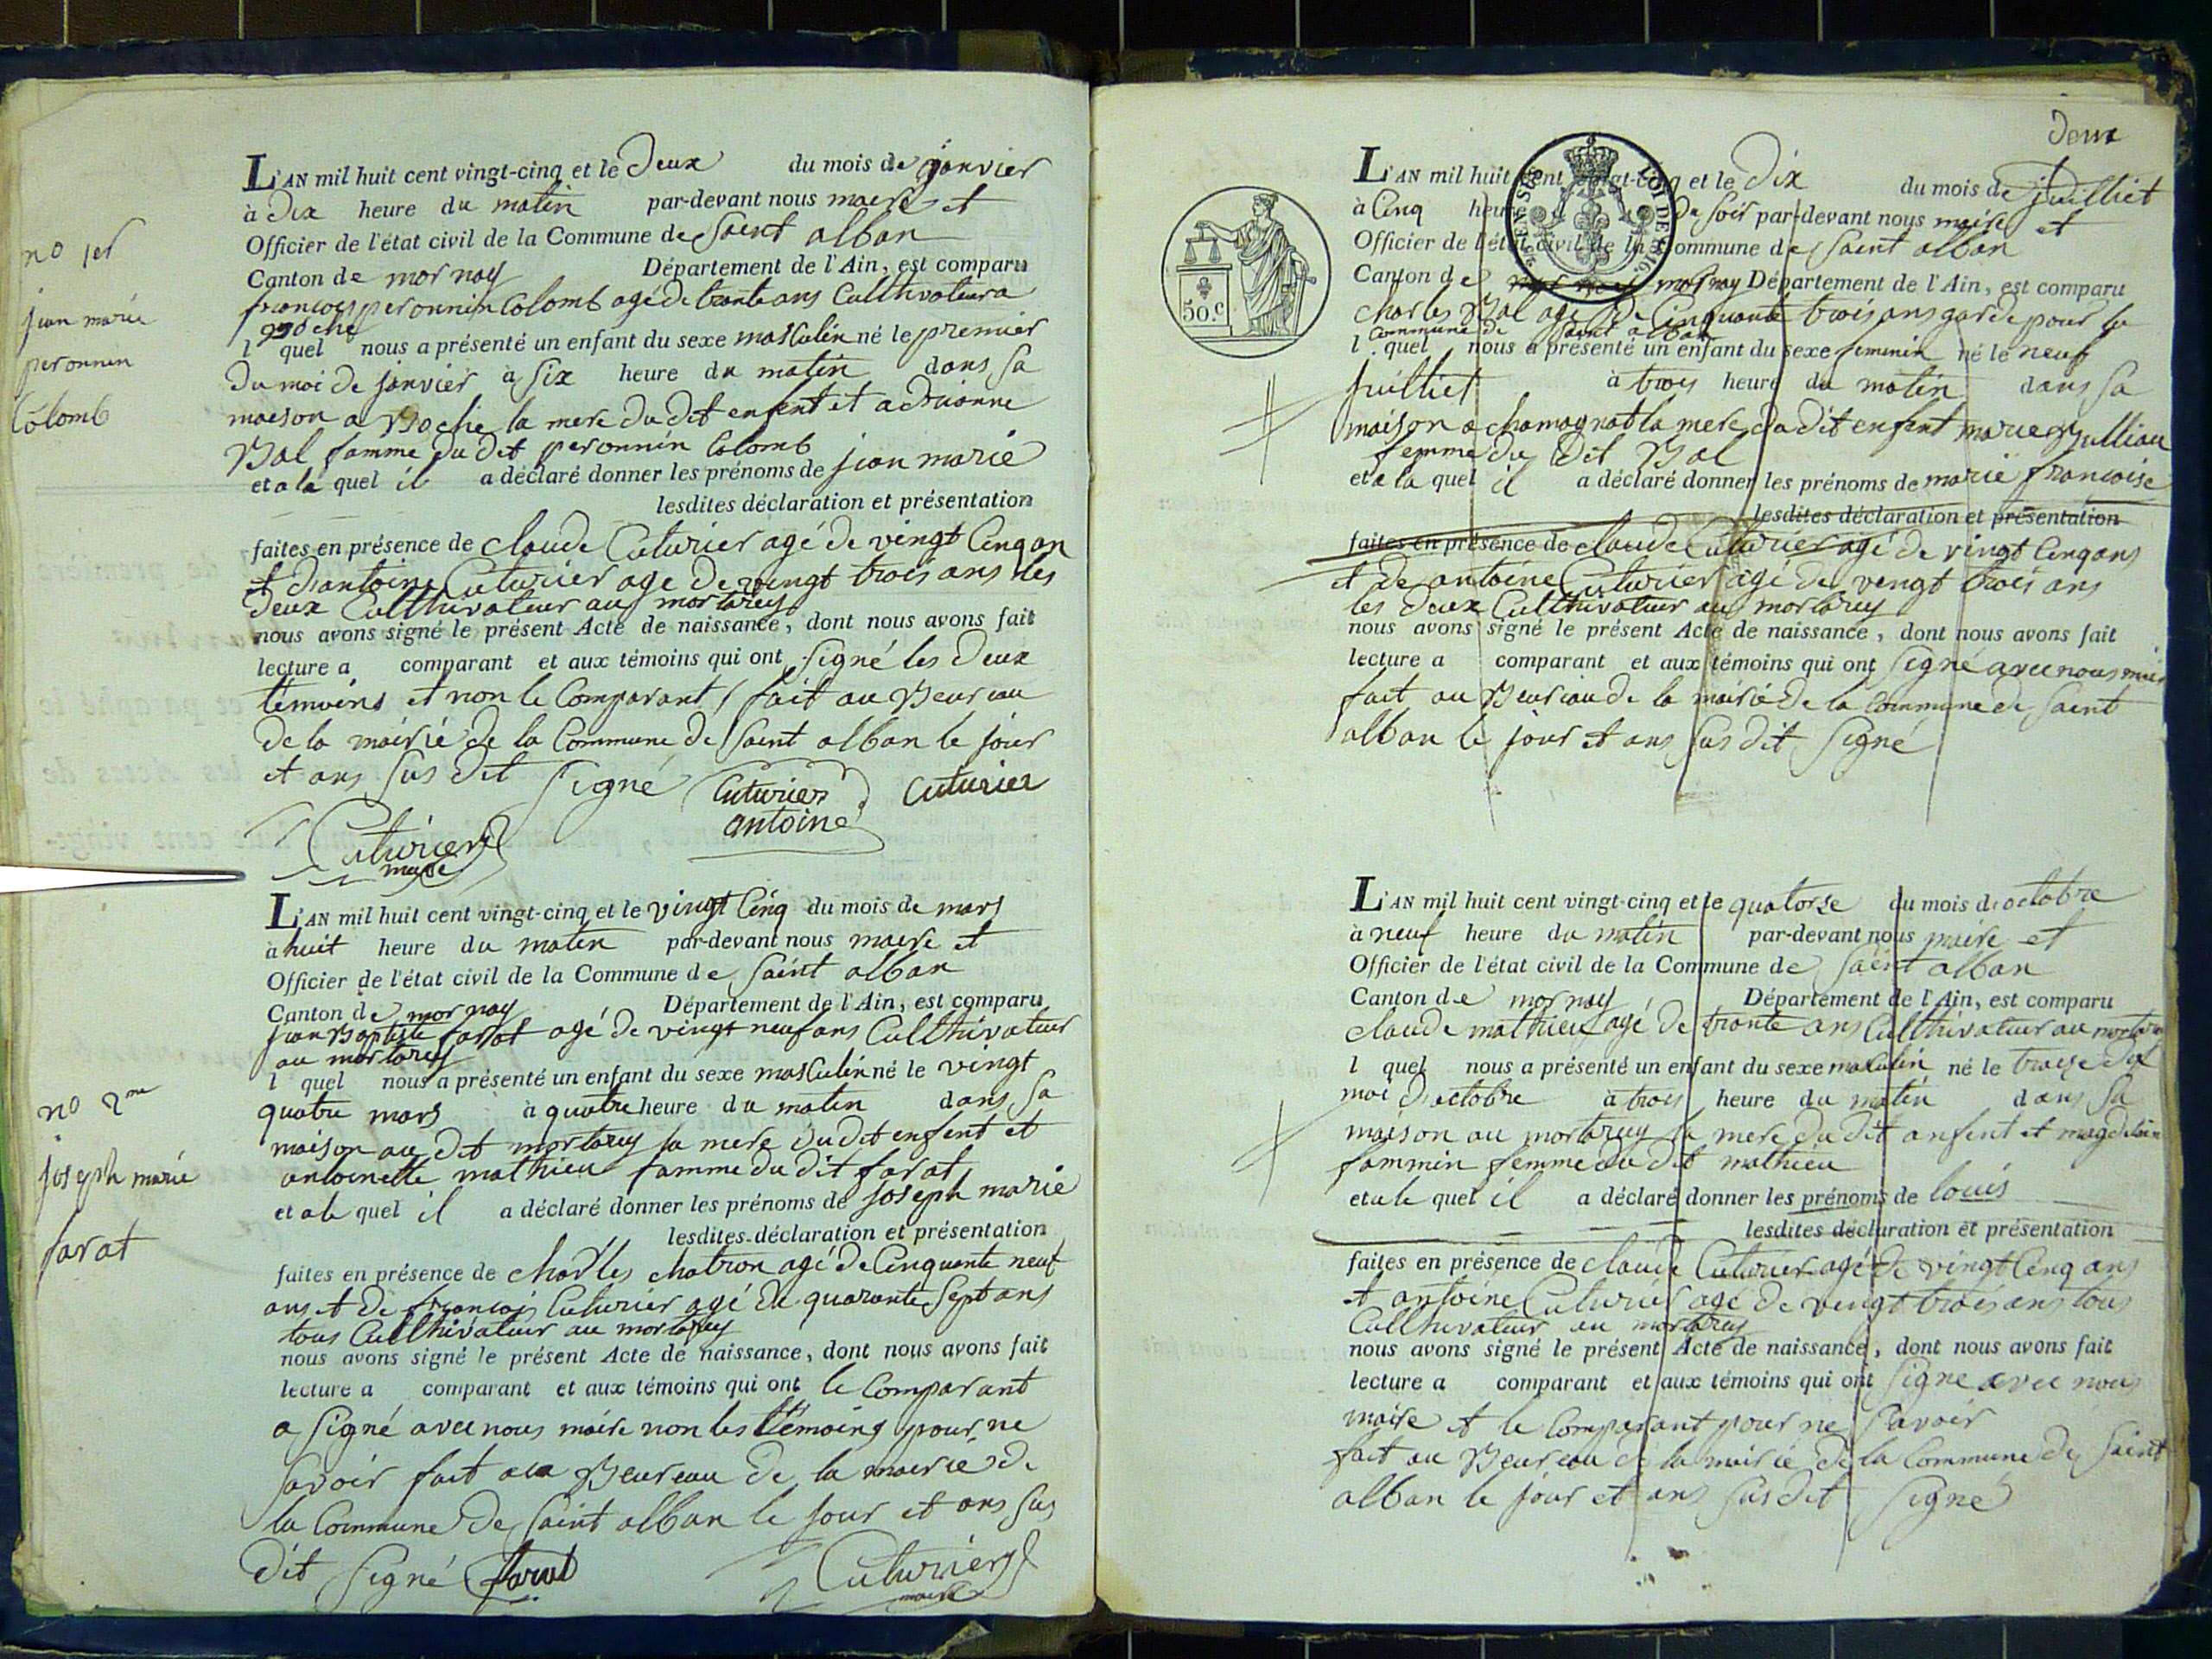 no 1er
jean marie
peronnin
Colomb
L'AN mil huit cent vingt-cinq et le Deux du mois de janvier
à Dix heure du matin par-devant nous maire et
Officier de l'état civil de la Commune de Saint alban
Canton de mornay Département de l'Ain, est comparu
francois peronnin Colomb agé de trante ans Culthivateur a
Boche
l quel nous a présenté un enfant du sexe masculin né le premier
du moi de janvier à Six heure du matin dans sa
maeson a Boche la mere du dit enfent et adrianne
Bal famme du dit peronnin Colomb
et a le quel il a déclaré donner les prénoms de jean marie
lesdites déclaration et présentation
faites en présence de claude Cuturier agé de vingt Cinq an
et d'antoine Cuturier age de vengt trois ans les
deux Culthivateur au mortarey
nous avons signé le présent Acte de naissance, dont nous avons fait
lecture a comparant et aux témoins qui ont Signé les deux
témoins et non le Comparant fait au Beureau
de la mairie de la Commune de Saint alban le jour
et ans sus dit Signé Cuturier Cuturier
antoine
Cuturier
maire
no 2me
joseph marie
farat
L'AN mil huit cent vingt-cinq et le vingt Cinq du mois de mars
à huit heure du matin par-devant nous maire et
Officier de l'état civil de la Commune de Saint alban
Canton de mornay Département de l'Ain, est comparu
jean Baptiste farat agé de vingt neuf ans Culthivateur
au mortarey
l quel nous a présenté un enfant du sexe masculin né le vingt
quatre mars à quatre heure du matin dans sa
maison au dit mortarey la mere du dit enfent et
antoinette mathieu famme du dit farat
et a le quel il a déclaré donner les prénoms de joseph marie
lesdites déclaration et présentation
faites en présence de charles chatron agé de Cinquante neuf
ans et de francois Cuturier agé de quarante Sept ans
tous Culthivateur au mortarey
nous avons signé le présent Acte de naissance, dont nous avons fait
lecture a comparant et aux témoins qui ont le Comparant
a Signé avec nous maire non les témoins pour ne
savoir fait au Beureau de la mairie de
la Commune de Saint alban le jour et ans sus
dit Signé farat Cuturier
maire
Deux
L'AN mil huit cent vingt-cinq et le Dix du mois de juilliet
à Cinq heure du Soir par-devant nous maire et
Officier de l'état civil de la Commune de Saint alban
Canton de mornay Département de l'Ain, est comparu
50.c
LOI DE 1816.
charles Bal age de Cinquante trois ans garde pour la
Commune de Saint alban
l quel nous a présenté un enfant du sexe feminin né le neuf
juilliet à trois heure du matin dans sa
maison a chamagnat la mere du dit enfent marie
femme du Dit Bal
et a la quel il a déclaré donner les prénoms de marie francoise
lesdites déclaration et présentation
faites en présence de claude Cuturier agé de vingt Cinq ans
et de antoine Cuturier agé de vengt trois ans
les deux Culthivateur au mortarey
nous avons signé le présent Acte de naissance, dont nous avons fait
lecture a comparant et aux témoins qui ont Signé avec nous maire
fait au Beureau de la mairie de la Commune de Saint
alban le jour et ans sus dit Signé
L'AN mil huit cent vingt-cinq et le quatorse du mois d octobre
à neuf heure du matin par-devant nous maire et
Officier de l'état civil de la Commune de Saint alban
Canton de mornay Département de l'Ain, est comparu
claude mathieu agé de trante ans Culthivateur au mortarey
l quel nous a présenté un enfant du sexe masculin né le traise du
moi d'octobre à trois heure du matin dans sa
maison au mortarey la mere du dit anfent et magdelaine
fammin femme du dit mathieu
et a le quel il a déclaré donner les prénoms de louis
lesdites déclaration et présentation
faites en présence de claude Cuturier agé de vingt Cinq ans
et antoine Cuturier agé de vengt trois ans tous
Culthivateur au mortarey
nous avons signé le présent Acte de naissance, dont nous avons fait
lecture a comparant et aux témoins qui ont Signe avec nous
maire et le Comparant pour ne Savoir
fait au Beureau de la mairie de la Commune de Saint
alban le jour et ans sus dit Signé